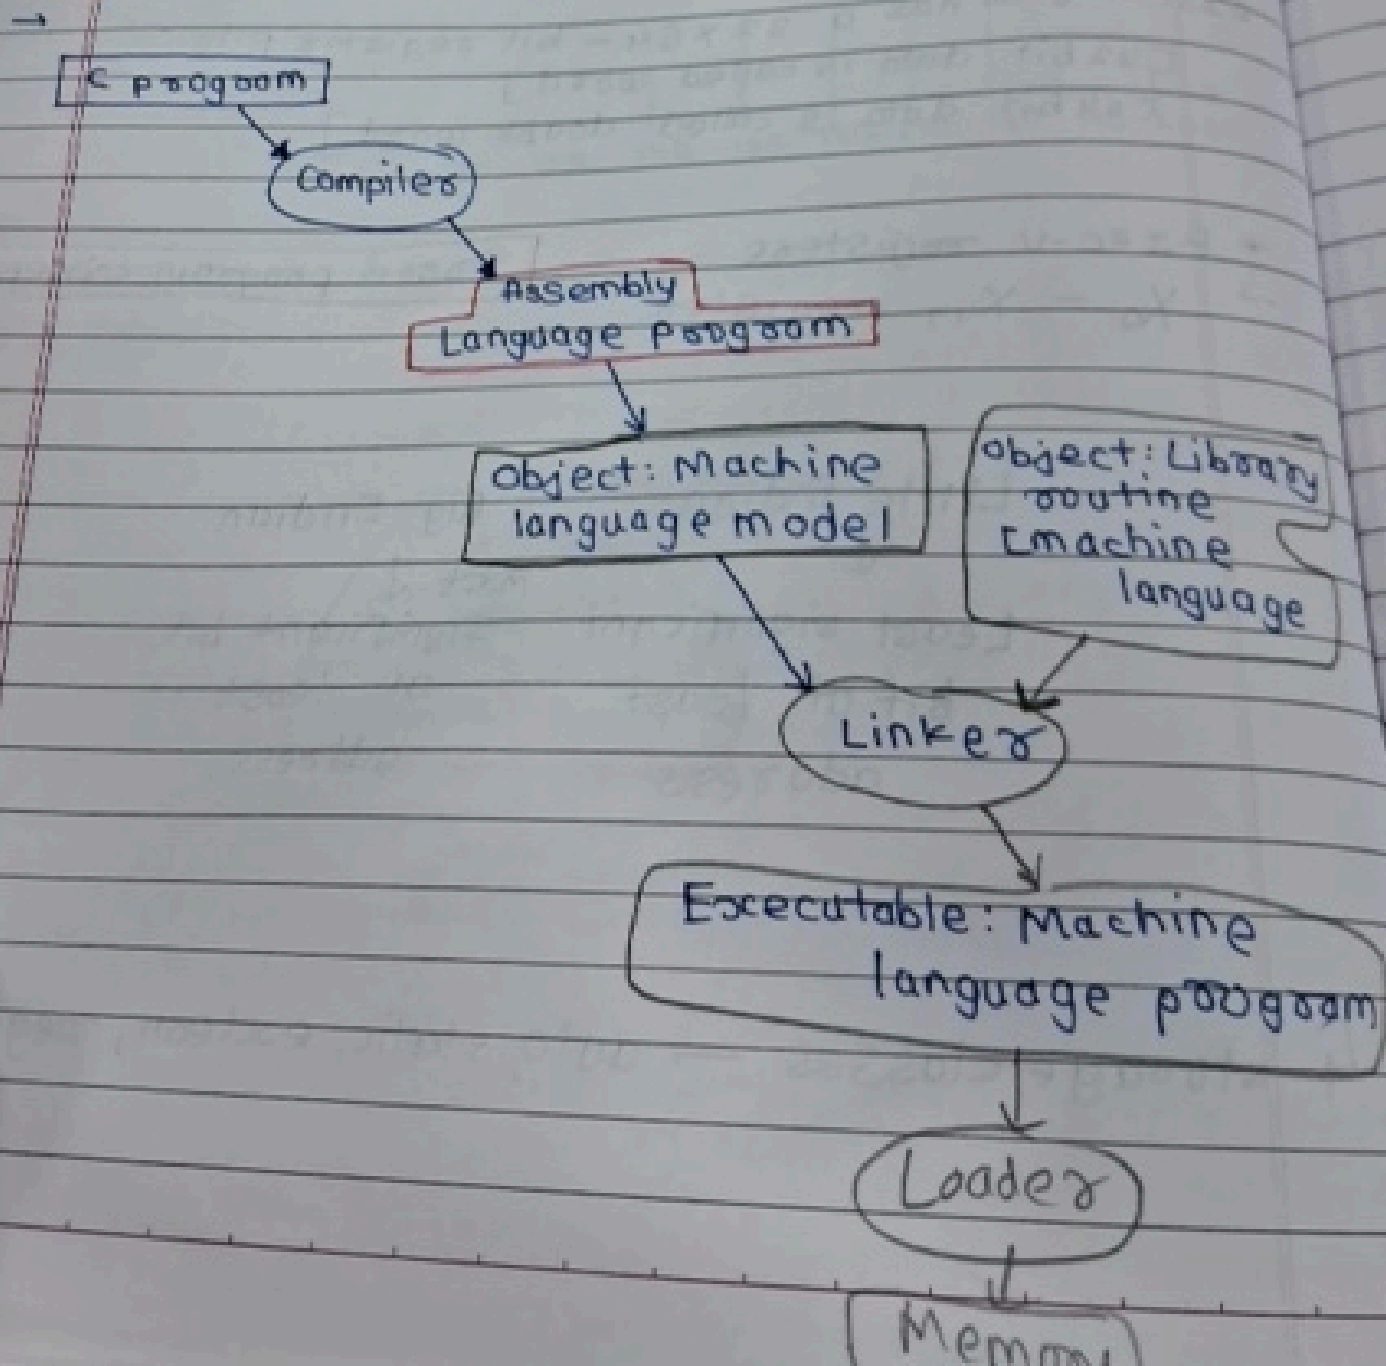 C program
Compiler
Assembly
Language Program
Object: Machine
language model
Object: Library
routine
[machine
language
Linker
Executable: Machine
language program
Loader
Memory